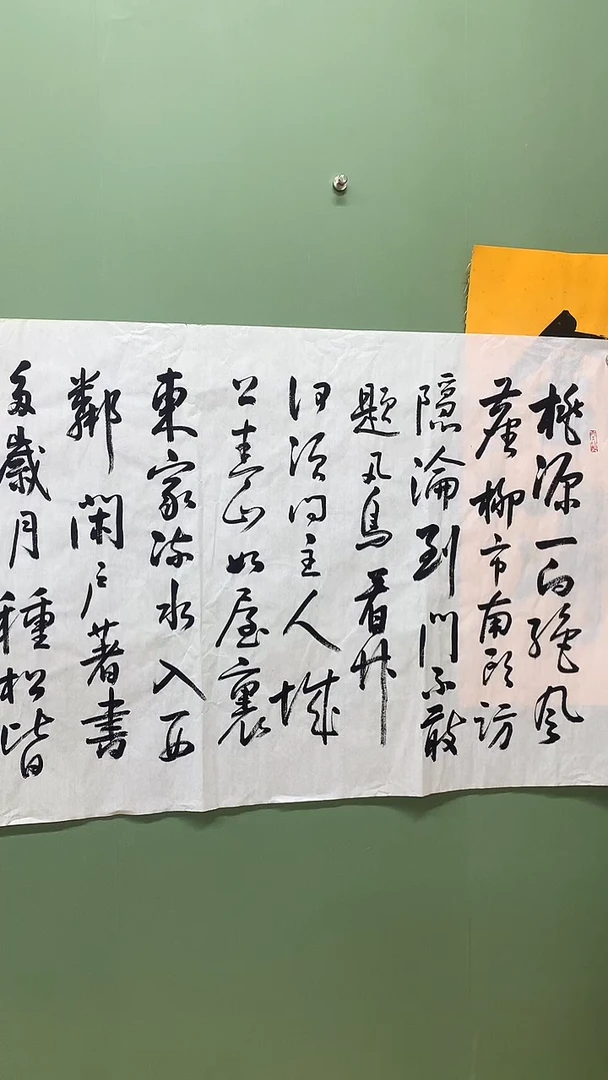 桃源一向絕風
塵柳市南頭訪
隱淪到門不敢
題凡鳥看竹
何須問主人城
上青山如屋裏
東家流水入西
鄰閑戶著書
多歲月種松皆